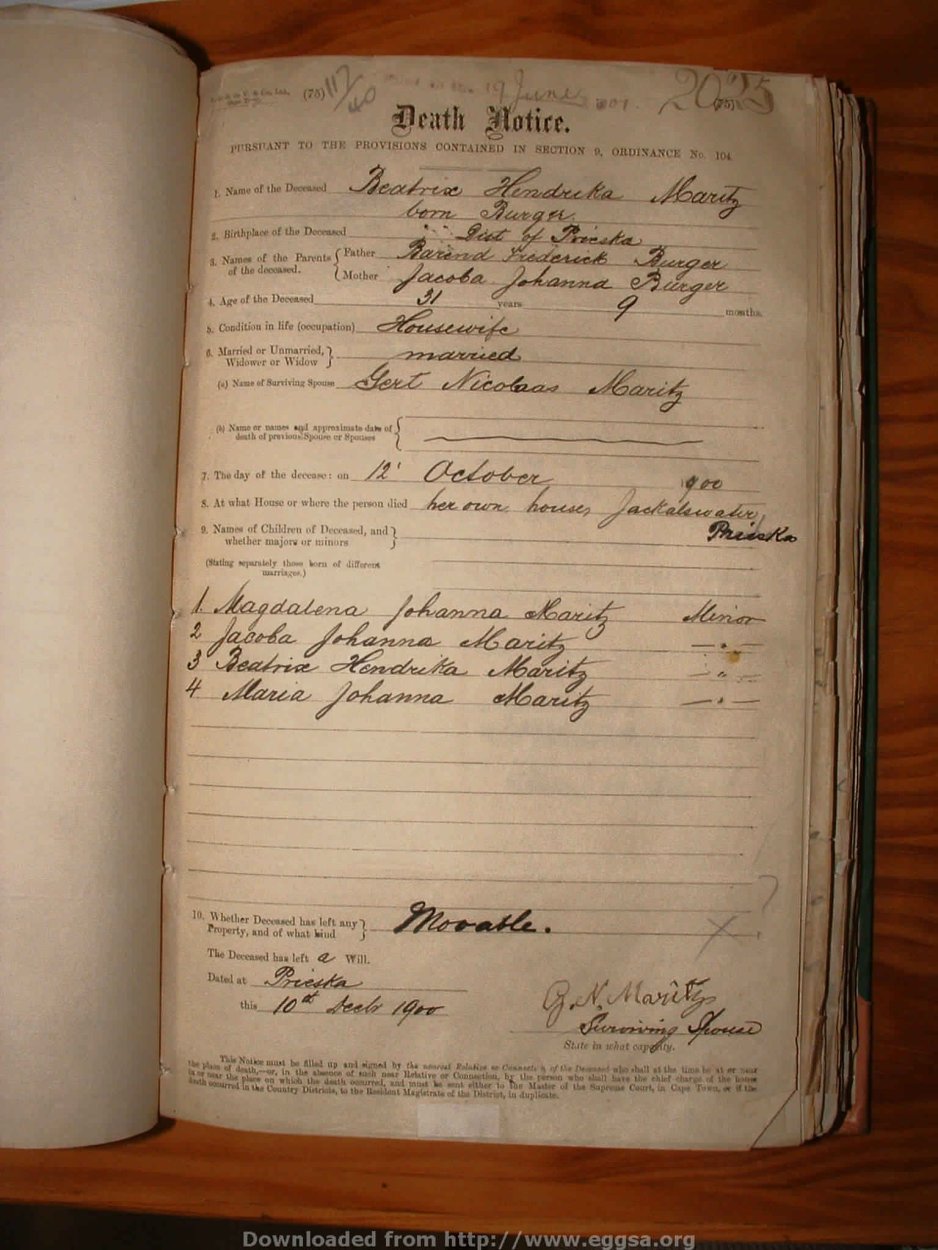 (75) 117/40 19 June 1901. 2025 (75)
Death Notice.
PURSUANT TO THE PROVISIONS CONTAINED IN SECTION 9, ORDINANCE No. 104
1. Name of the Deceased Beatrix Hendrika Maritz
born Burger
2. Birthplace of the Deceased Dist of Prieska
3. Names of the Parents of the deceased. { Father Barend Frederick Burger
Mother Jacoba Johanna Burger
4. Age of the Deceased 31 years 9 months.
5. Condition in life (occupation) Housewife
6. Married or Unmarried, Widower or Widow } married
(a) Name of Surviving Spouse Gert Nicolaas Maritz
(b) Name or names and approximate date of death of previous Spouse or Spouses {
7. The day of the decease: on 12' October 1900
8. At what House or where the person died her own house, Jackalswater,
Prieska
9. Names of Children of Deceased, and whether majors or minors }
(Stating separately those born of different marriages.)
1. Magdalena Johanna Maritz Minor
2 Jacoba Johanna Maritz — " —
3 Beatrix Hendrika Maritz — " —
4. Maria Johanna Maritz — " —
10. Whether Deceased has left any Property, and of what kind } Movable. X
The Deceased has left a Will.
Dated at Prieska
this 10th Decbr 1900
G. N. Maritz
Surviving Spouse
State in what capacity.
This Notice must be filled up and signed by the nearest Relative or Connection of the Deceased who shall at the time be at or near
the place of death,—or, in the absence of such near Relative or Connection, by the person who shall have the chief charge of the house
in or near the place on which the death occurred, and must be sent either to the Master of the Supreme Court, in Cape Town, or if the
death occurred in the Country Districts, to the Resident Magistrate of the District, in duplicate.
Downloaded from http://www.eggsa.org